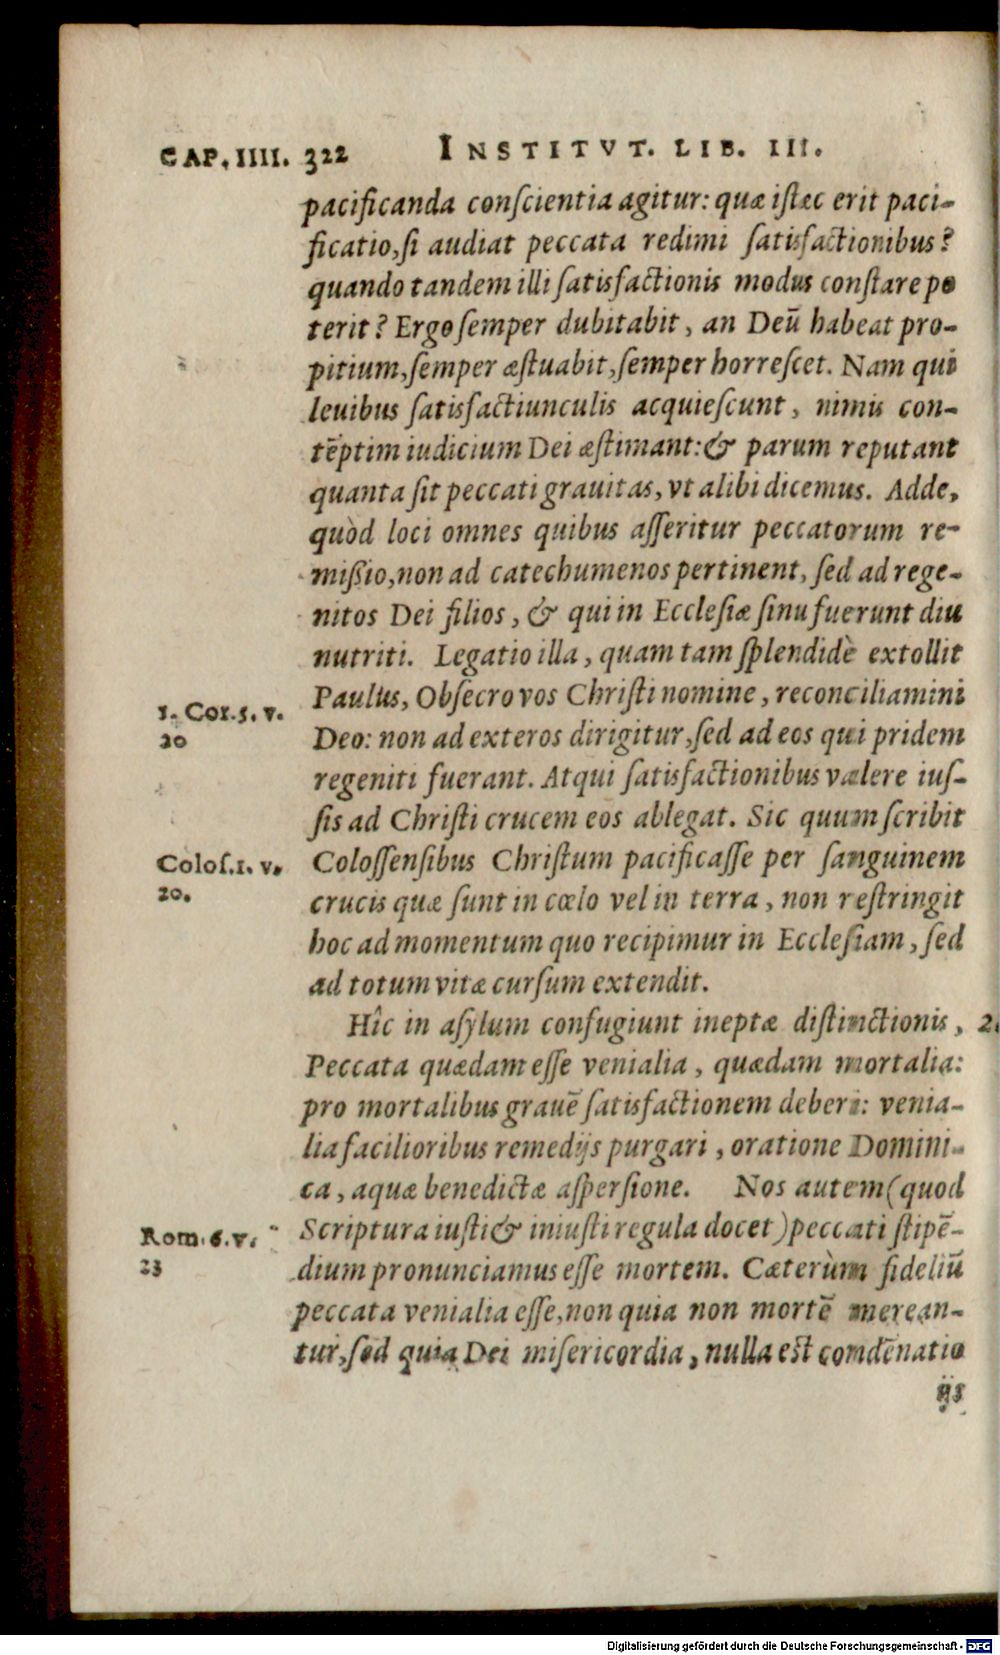 CAP. IIII. 322 INSTITVT. LIB. III.
pacificanda conſcientia agitur: quæ iſtæc erit paci-
ficatio, ſi audiat peccata redimi ſatisfactionibus?
quando tandem illi ſatisfactionis modus conſtare po
terit? Ergo ſemper dubitabit, an Deū habeat pro-
pitium, ſemper æſtuabit, ſemper horreſcet. Nam qui
leuibus ſatisfactiunculis acquieſcunt, nimis con-
tēptim iudicium Dei æſtimant: & parum reputant
quanta ſit peccati grauitas, vt alibi dicemus. Adde,
quòd loci omnes quibus aſſeritur peccatorum re-
mißio, non ad catechumenos pertinent, ſed ad rege-
nitos Dei filios, & qui in Eccleſiæ ſinu fuerunt diu
nutriti. Legatio illa, quam tam ſplendidè extollit
Paulus, Obſecro vos Chriſti nomine, reconciliamini
1. Cor. 5. v.
20
Deo: non ad exteros dirigitur, ſed ad eos qui pridem
regeniti fuerant. Atqui ſatisfactionibus valere iuſ-
ſis ad Chriſti crucem eos ablegat. Sic quum ſcribit
Coloſſenſibus Chriſtum pacificaſſe per ſanguinem
Coloſ. 1. v.
20.
crucis quæ ſunt in cœlo vel in terra, non reſtringit
hoc ad momentum quo recipimur in Eccleſiam, ſed
ad totum vitæ curſum extendit.
Hîc in aſylum confugiunt ineptæ diſtinctionis, 2.
Peccata quædam eſſe venialia, quædam mortalia:
pro mortalibus grauē ſatisfactionem deberi: venia-
lia facilioribus remedijs purgari, oratione Domini-
ca, aquæ benedictæ aſperſione. Nos autem (quod
Scriptura iuſti & iniuſti regula docet) peccati ſtipē-
Rom. 6. v.
23
dium pronunciamus eſſe mortem. Cæterùm fideliū
peccata venialia eſſe, non quia non mortē merean-
tur, ſed quia Dei miſericordia, nulla est comdēnatio
ijs
Digitalisierung gefördert durch die Deutsche Forschungsgemeinschaft - DFG